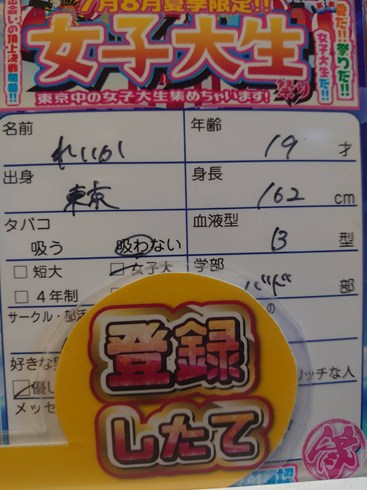 7月8月夏季限定!!
女子大生
祭り
東京中の女子大生集めちゃいます!
夏だ!!祭りだ!!
女子大生だ!!
名前
年齢
れいか
19才
出身
身長
東京
162cm
タバコ
血液型
吸う 吸わない
B型
□短大 ☑女子大
学部
□4年制
部
サークル・部活
登録
したて
好きな
リッチな人
優し
メッセ